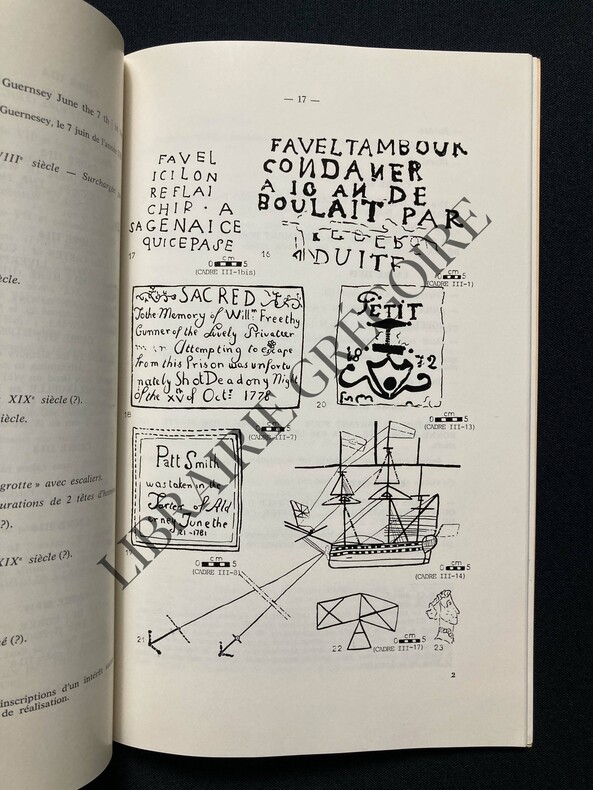 Guernsey June the 7 th
Guernesey, le 7 juin de l'année
VIIIᵉ siècle — Surcharge
siècle.
XIXᵉ siècle (?).
siècle.
grotte » avec escaliers.
gurations de 2 têtes
(?).
XIXᵉ siècle (?).
(?).
inscriptions d'un intérêt
de réalisation.
— 17 —
FAVEL
ICILON
REFLAI
CHIR · A
SAGENAICE
QUICEPASE
17
0 cm 5
(CADRE III-1bis)
FAVELTAMBOUR
CONDANER
A 10 AN DE
BOULAIT PAR
DUITE
16
cm
0 5
(CADRE III-1)
SACRED
To the Memory of Willᵐ Freethy
Gunner of the Lively Privateer
Attempting to escape
from this Prison was unfortu
nately Shot Dead on y Nig
of the xv of Octʳ 177
18
cm
0 5
(CADRE III-7)
PETIT
18 72
20
cm
0 5
(CADRE III-13)
Patt Smith
was taken in the
of Ald
erney June the
21-1781
cm
0 5
(CADRE III-8)
cm
0 5
(CADRE III-14)
21
22
cm
0 5
(CADRE III-17)
23
2
LIBRAIRIE GREGOIRE